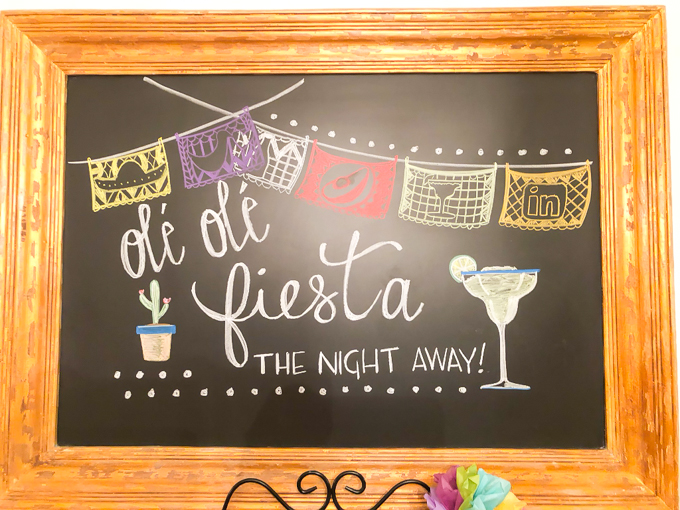 in
olé olé
fiesta
THE NIGHT AWAY!